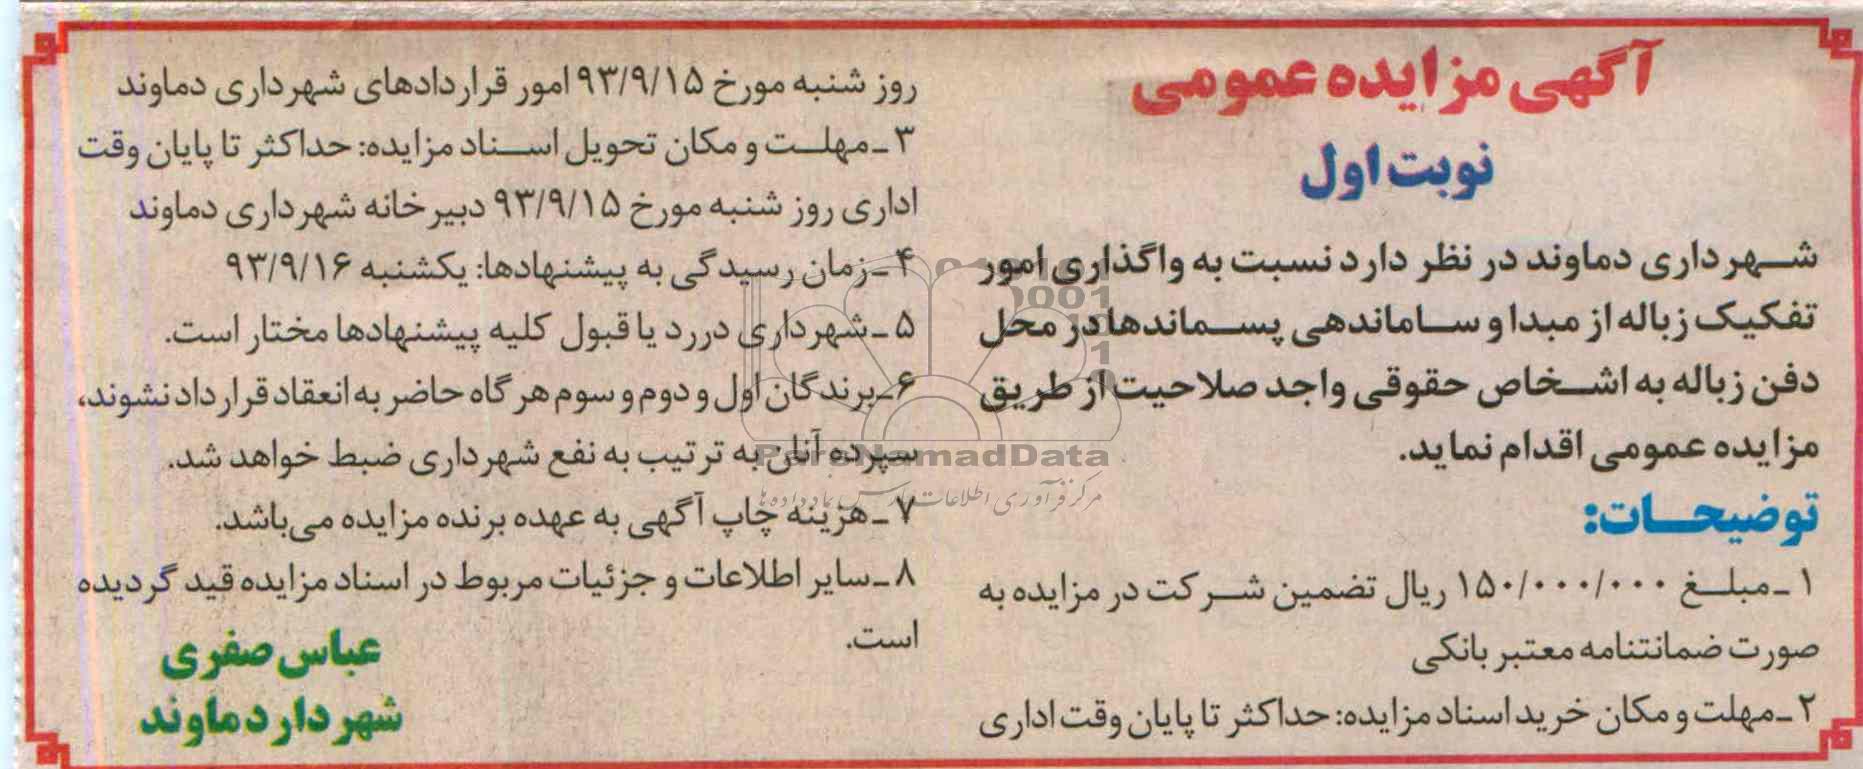 آگهی مزایده عمومی
نوبت اول
شهرداری دماوند در نظر دارد نسبت به واگذاری امور
تفکیک زباله از مبدا و ساماندهی پسماندها در محل
دفن زباله به اشخاص حقوقی واجد صلاحیت از طریق
مزایده عمومی اقدام نماید.
توضیحات:
۱ـ مبلغ ۱۵۰/۰۰۰/۰۰۰ ریال تضمین شرکت در مزایده به
صورت ضمانتنامه معتبر بانکی
۲ـ مهلت و مکان خرید اسناد مزایده: حداکثر تا پایان وقت اداری
روز شنبه مورخ ۹۳/۹/۱۵ امور قراردادهای شهرداری دماوند
۳ـ مهلت و مکان تحویل اسناد مزایده: حداکثر تا پایان وقت
اداری روز شنبه مورخ ۹۳/۹/۱۵ دبیرخانه شهرداری دماوند
۴ـ زمان رسیدگی به پیشنهادها: یکشنبه ۹۳/۹/۱۶
۵ـ شهرداری در رد یا قبول کلیه پیشنهادها مختار است.
۶ـ برندگان اول و دوم و سوم هر گاه حاضر به انعقاد قرارداد نشوند،
سپرده آنان به ترتیب به نفع شهرداری ضبط خواهد شد.
۷ـ هزینه چاپ آگهی به عهده برنده مزایده می‌باشد.
۸ـ سایر اطلاعات و جزئیات مربوط در اسناد مزایده قید گردیده
است.
عباس صفری
شهردار دماوند
ParsNamadData
مرکز فرآوری اطلاعات پارس نماد داده ها